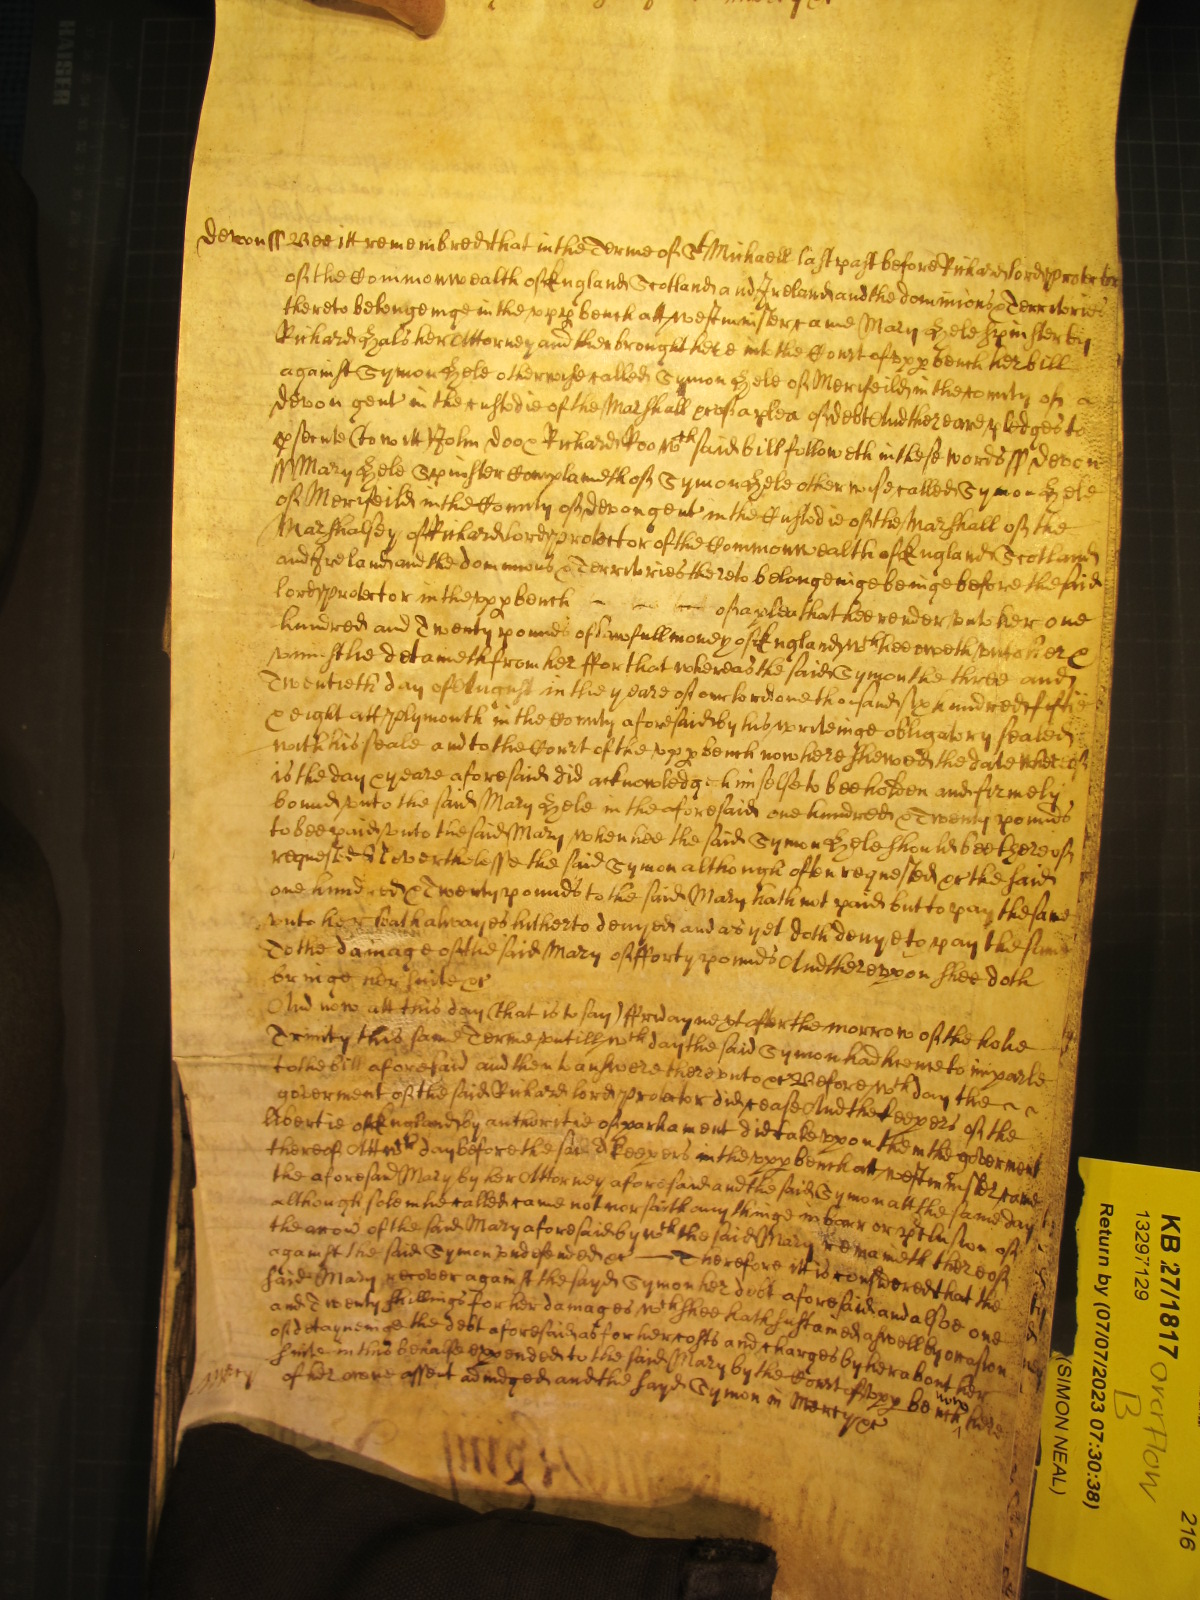 Devon ss Bee itt remembred that in the Terme of St Michaell last past before Richard lord protector
of the Commonwealth of England Scotland and Ireland and the dominions & Territories
thereto belongeinge in the upp bench att Westminster came Mary Hele Spinster by
Richard Hals her Attorney and then brought here into the Court of upp bench her bill
against Symon Hele otherwise called Symon Hele of Merifeild in the County of
Devon gent in the custodie of the Marshall &c of a plea of debt And there are pledges to
psecute (to witt) John Doo & Richard Roo wch said bill followeth in these words ss Devon
ss Mary Hele Spinster Complaineth of Symon Hele otherwise called Symon Hele
of Merifeild in the County of Devon gent in the Custodie of the Marshall of the
Marshalsey of Richard lord protector of the Commonwealth of England Scotland
and Ireland and the dominions & Territories thereto belongeinge beinge before the said
lord protector in the upp bench of a plea that hee render unto her one
hundred and Twenty pounds of lawfull money of England wch hee oweth unto her &
uniustlie detaineth from her ffor that whereas the said Symon the three and
Twentieth day of August in the yeare of our lord one thousand six hundred fiftie
& eight att Plymouth in the County aforesaid by his writeinge obligatory sealed
with his seale and to the Court of the upp bench now here shewed the date whereof
is the day & yeare aforesaid did acknowledge himselfe to bee holden and firmely
bound unto the said Mary Hele in the aforesaid one hundred & Twenty pounds
to bee paid unto the said Mary when hee the said Symon Hele should bee thereof
requested Neverthelesse the said Symon although often requested &c the said
one hundred & Twenty pounds to the said Mary hath not paid but to pay the same
unto her hath alwayes hitherto denyed and as yet doth denye to pay the same
To the damage of the said Mary of fforty pounds And thereupon shee doth
bringe her suite &c
And now att this day (that is to say) ffriday next after the morrow of the holie
Trinity this same Terme untill wch day the said Symon had licence to imparle
to the bill aforesaid and then to answere thereunto &c Before wch day the
goverment of the said Richard lord protector did cease And the keepers of the
libertie of England by authoritie of parliament did take uppon them the goverment
thereof Att wch day before the said keepers in the upp bench att Westminster came
the aforesaid Mary by her Attorney aforesaid and the said Symon att the same day
although solemlie called came not nor saith any thinge in barr or pclusion of
the accon of the said Mary aforesaid by wch the said Mary remaineth thereof
against the said Symon undefended &c Therefore itt is considered that the
said Mary recover against the sayd Symon her debt aforesaid and alsoe one
and Twenty shillings for her damages wch shee hath sustained aswell by occasion
of detayneinge the debt aforesaid as for her costs and charges by her about her
suite in this behalfe expended to the said Mary by the Court of upp bench now here
mercy of her owne assent adiudged and the sayd Symon in Mercy &c
KB 27/1817 Overflow B
13297129
Return by (07/07/2023 07:30:38)
(SIMON NEAL)
216
KAISER